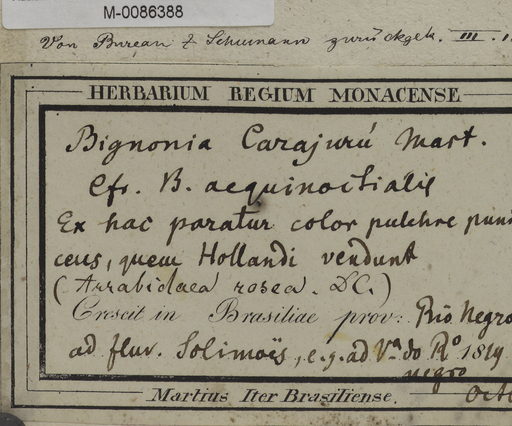 M-0086388
Von Bureau & Schumann zurückgek. III.
HERBARIUM REGIUM MONACENSE
Bignonia Carajurú Mart.
Cfr. B. aequinoctialis
Ex hac paratur color pulchre puni
ceus, quem Hollandi vendunt
(Arrabidaea rosea. DC.)
Crescit in Brasiliae prov: Rio Negro
ad fluv. Solimoës, e.g. ad Va. do Ro. 1819
negro
Martius Iter Brasiliense.
Octo